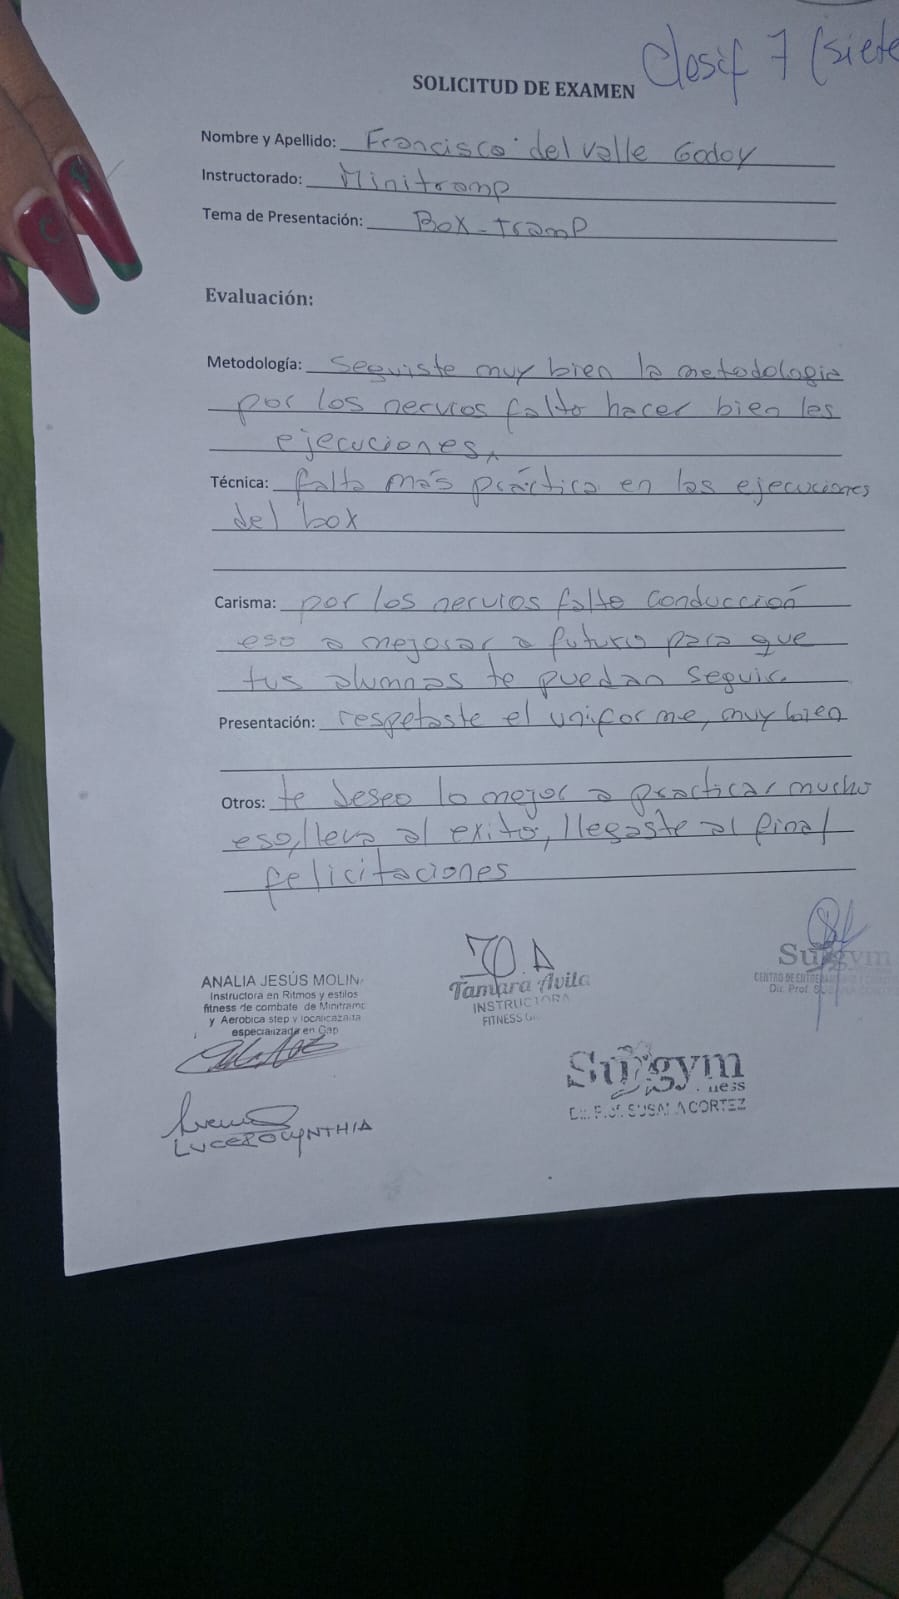 Clasif 7 (siete
SOLICITUD DE EXAMEN
Nombre y Apellido: Francisca del valle Godoy
Instructorado: Minitramp
Tema de Presentación: Box-Tramp
Evaluación:
Metodología: seguiste muy bien la metodologia
por los nervios falto hacer bien las
ejecuciones
Técnica: falta más práctica en las ejecuciones
del box
Carisma: por los nervios falto conducción
eso a mejorar a futuro para que
tus alumnas te puedan seguir.
Presentación: respetaste el uniforme, muy bien
Otros: te deseo lo mejor a practicar mucho
eso lleva al exito, llegaste al final
felicitaciones
ANALIA JESÚS MOLIN
Instructora en Ritmos y estilos
fitness de combate de Minitramp
y Aerobica step y localizada
especializada en Gap
Tamara Avila
INSTRUCTORA
FITNESS
Surgym
CENTRO DE
Dir. Prof.
Surgym
ness
Dir. Prof. SUSANA CORTEZ
LUCERO CYNTHIA